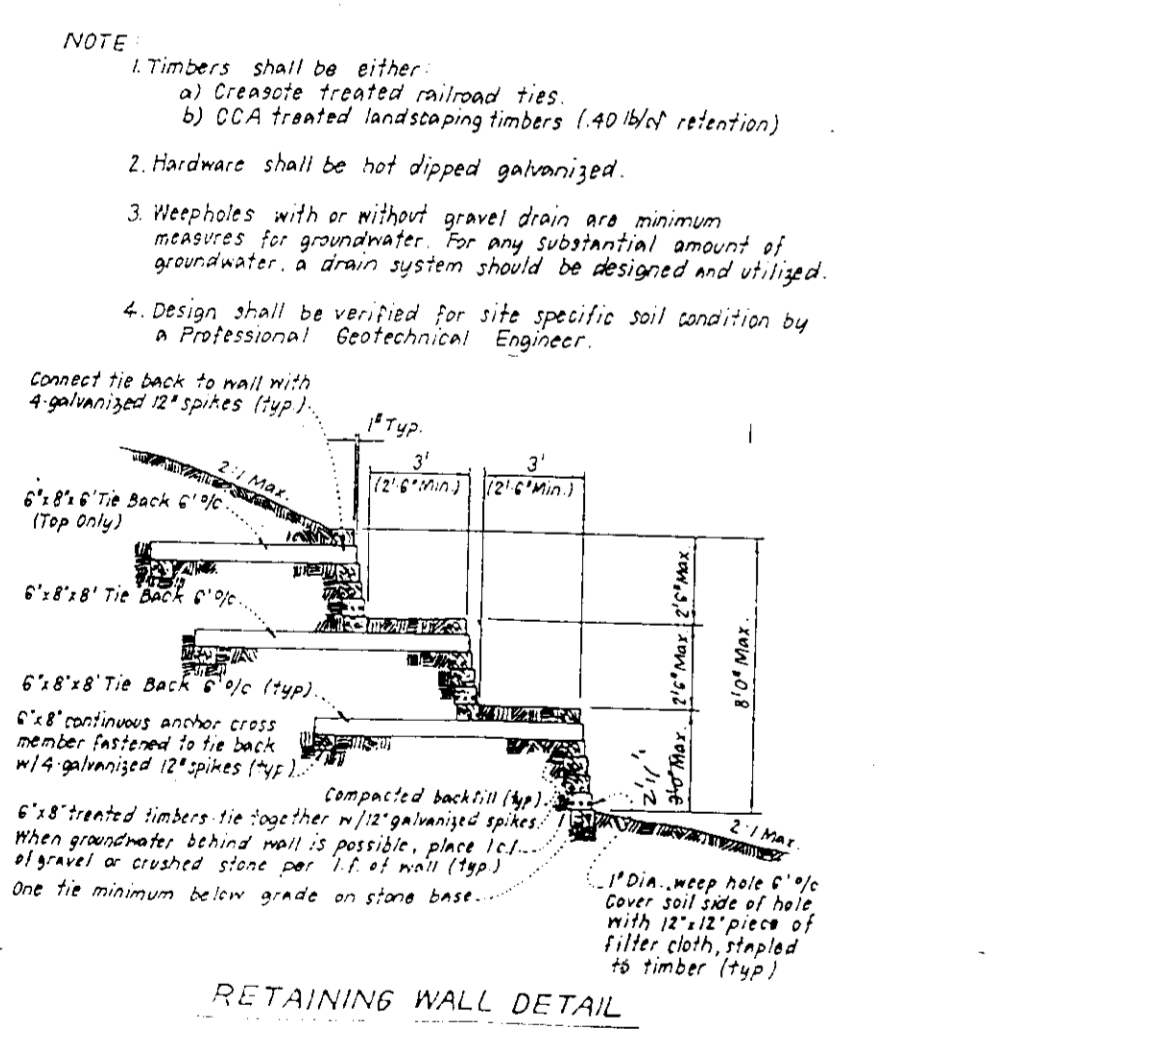 NOTE:
1. Timbers shall be either:
a) Creasote treated railroad ties.
b) CCA treated landscaping timbers (.40 lb/cf retention)
2. Hardware shall be hot dipped galvanized.
3. Weepholes with or without gravel drain are minimum
measures for groundwater. For any substantial amount of
groundwater, a drain system should be designed and utilized.
4. Design shall be verified for site specific soil condition by
a Professional Geotechnical Engineer.
Connect tie back to wall with
4-galvanized 12" spikes (typ.)
1" Typ.
3'
(2'-6" Min.)
3'
(2'-6" Min.)
2:1 Max.
6"x8"x6' Tie Back 6' o/c
(Top Only)
6"x8"x8' Tie Back 6' o/c
2'6" Max
2'6" Max
8'0" Max.
6"x8"x8' Tie Back 6' o/c (typ)
6"x8" continuous anchor cross
member fastened to tie back
w/4-galvanized 12" spikes (typ.)
3'0" Max.
Compacted backfill (typ)
6"x8" treated timbers tie together w/12" galvanized spikes.
When groundwater behind wall is possible, place 1 c.f.
of gravel or crushed stone per l.f. of wall (typ.)
One tie minimum below grade on stone base
2:1 Max.
1" Dia. weep hole 6' o/c
Cover soil side of hole
with 12"x12" piece of
filter cloth, stapled
to timber (typ)
RETAINING WALL DETAIL